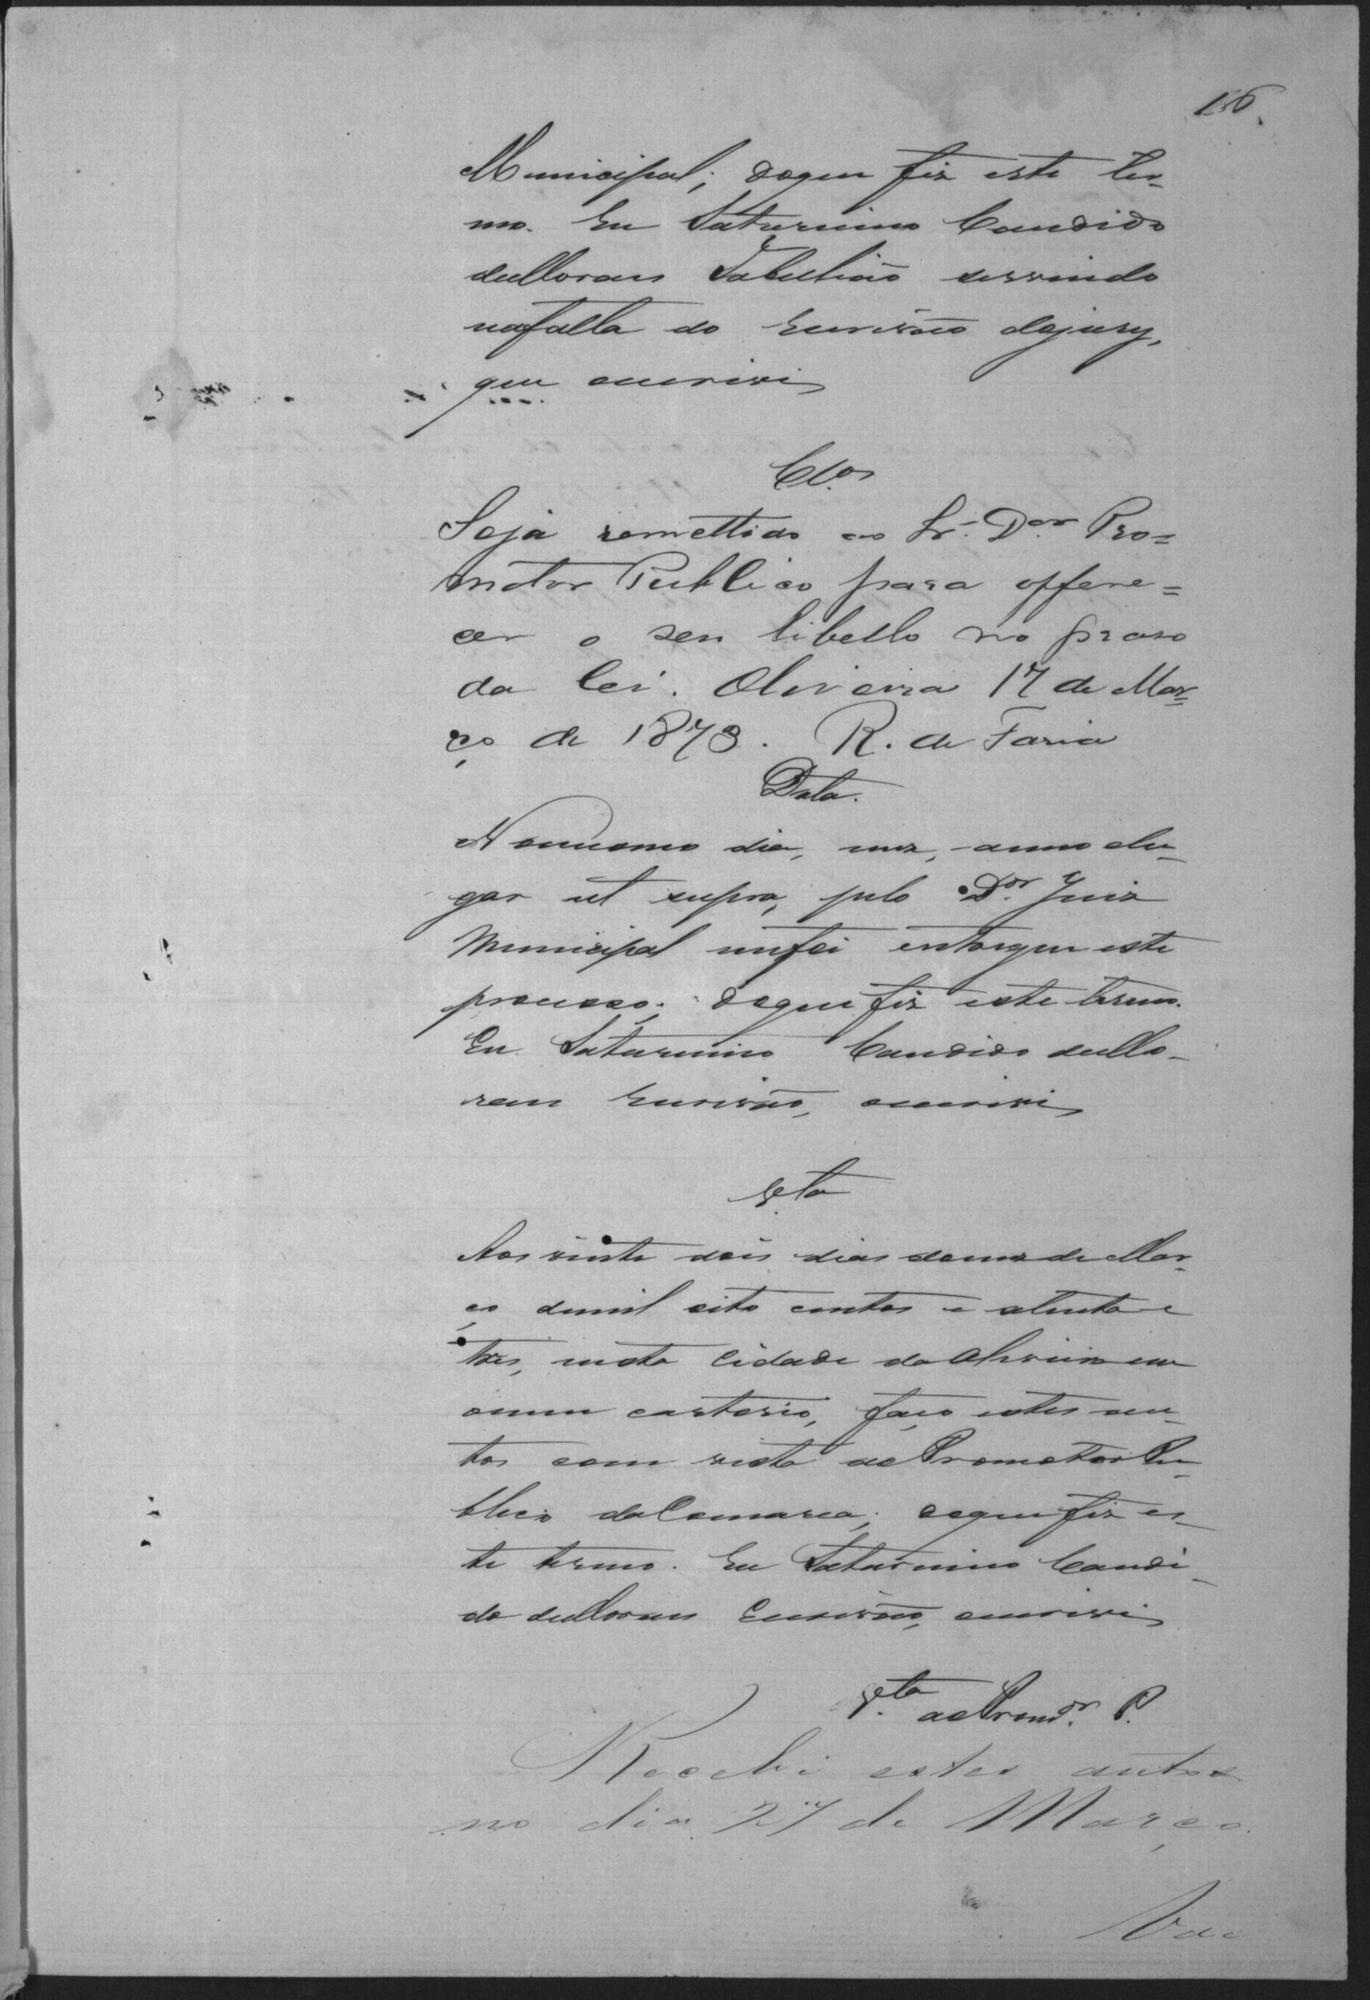 Municipal; doque fiz este ter-
mo. Eu Saturnino Candido
de Moraes Tabelião servindo
na falta do Escrivão do jury,
que escrevi
Cl.os
Seja remettido ao Sr. D.or Pro=
motor Publico para offere=
cer o seu libello no praso
da lei. Oliveira 17 de Mar=
ço de 1873. R. de Faria
Data.
No mesmo dia, mez, anno e lu-
gar ut supra, pelo D.or Juiz
Municipal me foi entregue este
processo; do que fiz este termo.
Eu Saturnino Candido de Mo-
raes Escrivão, escrevi
V.ta
Aos vinte dois dias do mez de Mar-
ço de mil oito centos e setenta e
tres, nesta Cidade da Oliveira em
o meu cartorio, faço estes au-
tos com vista ao Promotor Pu-
blico da Comarca; do que fiz es-
te termo. Eu Saturnino Candi-
do de Moraes Escrivão, escrevi
V.ta ao Prom.or P.
Recebi estes autos
no dia 27 de Março.